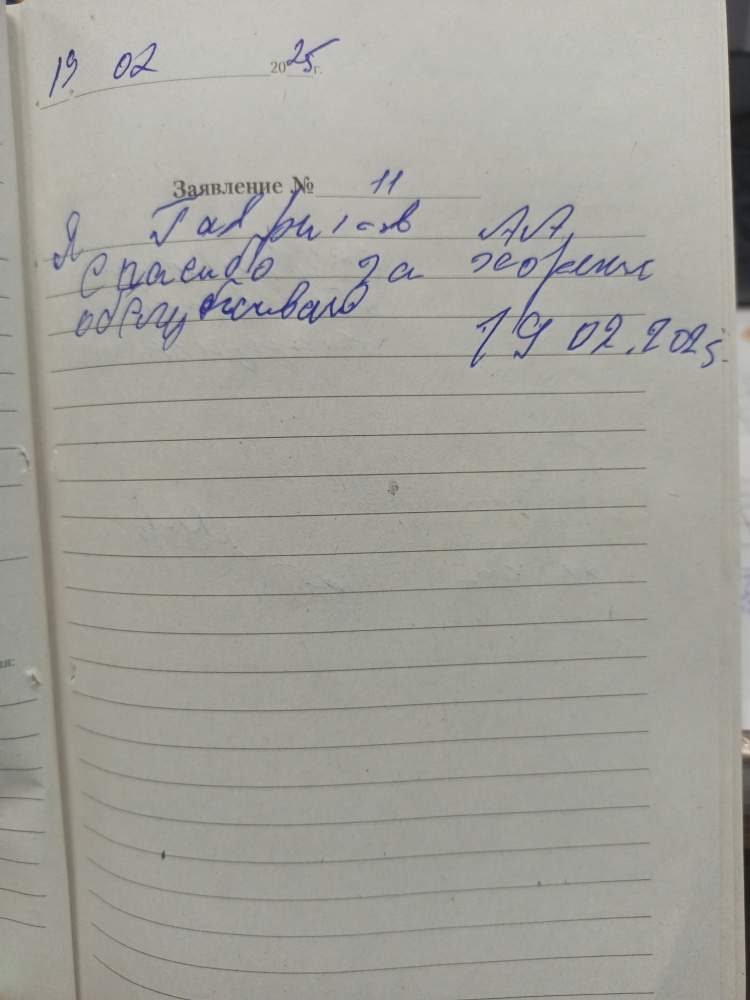 19 02 2025 г.
Заявление № 11
Я Гаврилов А.А.
Спасибо за хорошее
обслуживание
19 02.2025